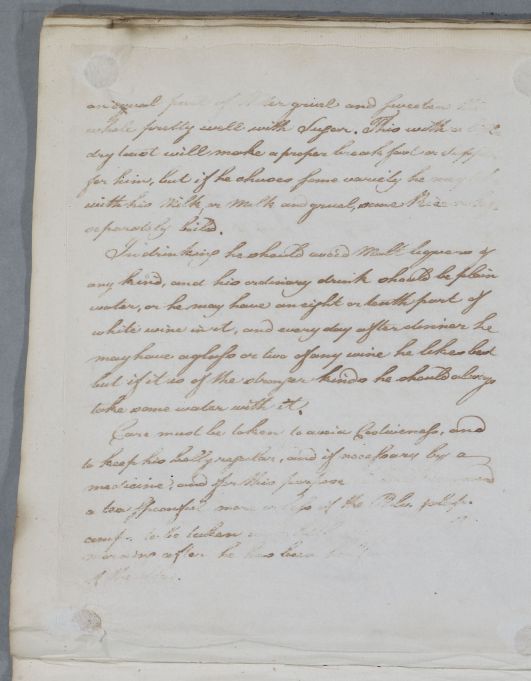 an equal part of Water gruel and sweeten the
whole pretty well with Sugar. This with a little
dry toast will make a proper breakfast or supper
for him, but if he chuses some variety he may
with his Milk, or Milk and gruel, some Rice
separately boiled.
In drinking he should avoid Malt liquors of
any kind, and his ordinary drink should be plain
water, or he may have an eight or tenth part of
white wine in it, and every day after dinner he
may have a glass or two of any wine he likes best
but if it is of the stronger kinds he should always
take some water with it.
Care must be taken to avoid Costiveness, and
to keep his belly regular, and if necessary by a
medicine; and for this purpose
a tea Spoonful more or less of the
to be taken
morning after he has been